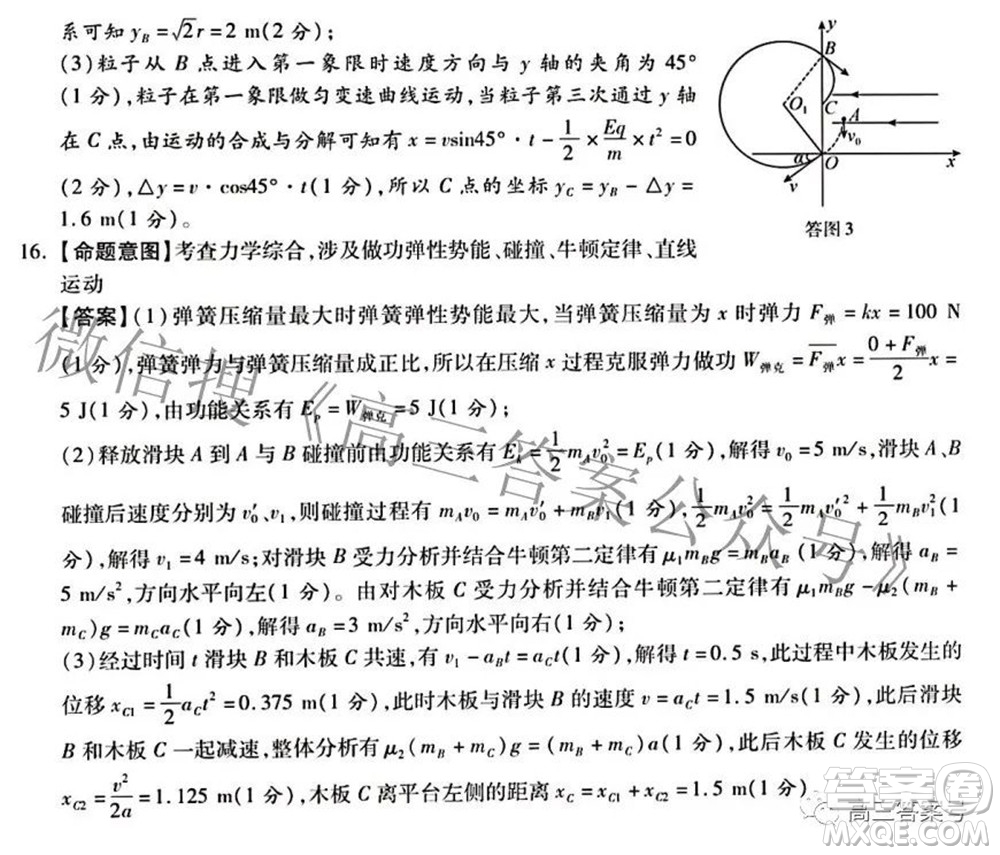 系可知 y_B=√2r=2 m(2 分);
(3)粒子从 B 点进入第一象限时速度方向与 y 轴的夹角为 45°
(1 分),粒子在第一象限做匀变速曲线运动,当粒子第三次通过 y 轴
在 C 点,由运动的合成与分解可知有 x=vsin45°·t-1/2×Eq/m×t²=0
(2 分),△y=v·cos45°·t(1 分),所以 C 点的坐标 y_C=y_B-△y=
1.6 m(1 分)。
y
B
O₁
C
A
v₀
α
O
x
v
答图 3
16.【命题意图】考查力学综合,涉及做功弹性势能、碰撞、牛顿定律、直线
运动
【答案】(1)弹簧压缩量最大时弹簧弹性势能最大,当弹簧压缩量为 x 时弹力 F弹=kx=100 N
(1 分),弹簧弹力与弹簧压缩量成正比,所以在压缩 x 过程克服弹力做功 W弹克=F弹x=(0+F弹)/2 x=
5 J(1 分),由功能关系有 E_p=W弹克=5 J(1 分);
(2)释放滑块 A 到 A 与 B 碰撞前由功能关系有 E_k=1/2 m_Av₀²=E_p(1 分),解得 v₀=5 m/s,滑块 A、B
碰撞后速度分别为 v₀′、v₁,则碰撞过程有 m_Av₀=m_Av₀′+m_Bv₁(1 分),1/2 m_Av₀²=1/2 m_Av₀′²+1/2 m_Bv₁²(1
分),解得 v₁=4 m/s;对滑块 B 受力分析并结合牛顿第二定律有 μ₁m_Bg=m_Ba_B(1 分),解得 a_B=
5 m/s²,方向水平向左(1 分)。由对木板 C 受力分析并结合牛顿第二定律有 μ₁m_Bg-μ₂(m_B+
m_C)g=m_Ca_C(1 分),解得 a_B=3 m/s²,方向水平向右(1 分);
(3)经过时间 t 滑块 B 和木板 C 共速,有 v₁-a_Bt=a_Ct(1 分),解得 t=0.5 s,此过程中木板发生的
位移 x_C1=1/2 a_Ct²=0.375 m(1 分),此时木板与滑块 B 的速度 v=a_Ct=1.5 m/s(1 分),此后滑块
B 和木板 C 一起减速,整体分析有 μ₂(m_B+m_C)g=(m_B+m_C)a(1 分),此后木板 C 发生的位移
x_C2=v²/2a=1.125 m(1 分),木板 C 离平台左侧的距离 x_C=x_C1+x_C2=1.5 m(1 分)
微信搜《高二答案公众号》
高二答案号
答案圈
MXQE.COM